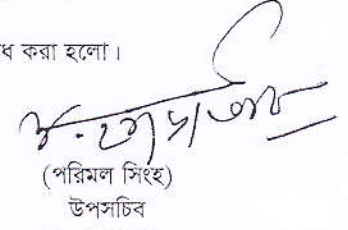 ধ করা হলো।
(পরিমল সিংহ)
উপসচিব